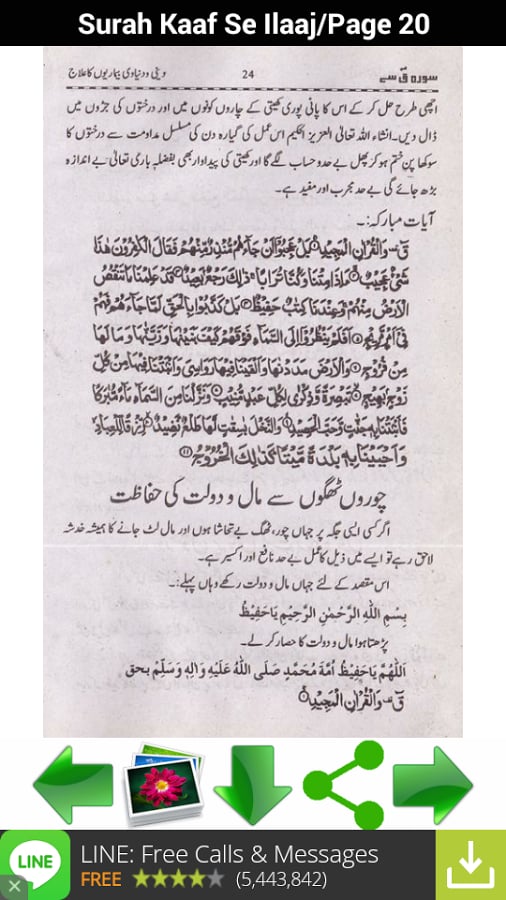 Surah Kaaf Se Ilaaj/Page 20
سورہ قٓ سے 24 دینی و دنیاوی بیماریوں کا علاج
اچھی طرح حل کر کے اس کا پانی پوری کھیتی کے چاروں کونوں میں اور درختوں کی جڑوں میں
ڈال دیں۔ انشاء اللہ تعالیٰ العزیز الحکیم اس عمل کی گیارہ دن کی مسلسل مداومت سے درختوں کا
سوکھا پن ختم ہو کر پھل بے حد و حساب لگے گا اور کھیتی کی پیداوار بھی بفضلہ باری تعالیٰ بے اندازہ
بڑھ جائے گی بے حد مجرب اور مفید ہے۔
آیات مبارکہ:۔
قٓ وَالْقُرْاٰنِ الْمَجِیْدِ بَلْ عَجِبُوْۤا اَنْ جَآءَهُمْ مُّنْذِرٌ مِّنْهُمْ فَقَالَ الْكٰفِرُوْنَ هٰذَا
شَیْءٌ عَجِیْبٌ ءَاِذَا مِتْنَا وَكُنَّا تُرَابًا ذٰلِكَ رَجْعٌۢ بَعِیْدٌ قَدْ عَلِمْنَا مَا تَنْقُصُ
الْاَرْضُ مِنْهُمْ وَعِنْدَنَا كِتٰبٌ حَفِیْظٌ بَلْ كَذَّبُوْا بِالْحَقِّ لَمَّا جَآءَهُمْ فَهُمْ
فِیْۤ اَمْرٍ مَّرِیْجٍ اَفَلَمْ یَنْظُرُوْۤا اِلَى السَّمَآءِ فَوْقَهُمْ كَیْفَ بَنَیْنٰهَا وَزَیَّنّٰهَا وَمَا لَهَا
مِنْ فُرُوْجٍ وَالْاَرْضَ مَدَدْنٰهَا وَاَلْقَیْنَا فِیْهَا رَوَاسِیَ وَاَنْۢبَتْنَا فِیْهَا مِنْ كُلِّ
زَوْجٍۭ بَهِیْجٍ تَبْصِرَةً وَّذِكْرٰى لِكُلِّ عَبْدٍ مُّنِیْبٍ وَنَزَّلْنَا مِنَ السَّمَآءِ مَآءً مُّبٰرَكًا
فَاَنْۢبَتْنَا بِهٖ جَنّٰتٍ وَّحَبَّ الْحَصِیْدِ وَالنَّخْلَ بٰسِقٰتٍ لَّهَا طَلْعٌ نَّضِیْدٌ رِّزْقًا لِّلْعِبَادِ
وَاَحْیَیْنَا بِهٖ بَلْدَةً مَّیْتًا كَذٰلِكَ الْخُرُوْجُ
چوروں ٹھگوں سے مال و دولت کی حفاظت
اگر کسی ایسی جگہ پر جہاں چور، ٹھگ بے تحاشا ہوں اور مال لٹ جانے کا ہمیشہ خدشہ
لاحق رہے تو ایسے میں ذیل کا عمل بے حد نافع اور اکسیر ہے۔
اس مقصد کے لئے جہاں مال و دولت رکھے وہاں پہلے:۔
بِسْمِ اللّٰهِ الرَّحْمٰنِ الرَّحِیْمِ یَاحَفِیْظُ
پڑھتا ہوا مال و دولت کا حصار کر لے۔
اَللّٰهُمَّ یَاحَفِیْظُ اُمَّةَ مُحَمَّدٍ صَلَّى اللّٰهُ عَلَیْهِ وَاٰلِهٖ وَسَلَّمَ بحق
قٓ وَالْقُرْاٰنِ الْمَجِیْدِ
LINE
LINE: Free Calls & Messages
FREE (5,443,842)